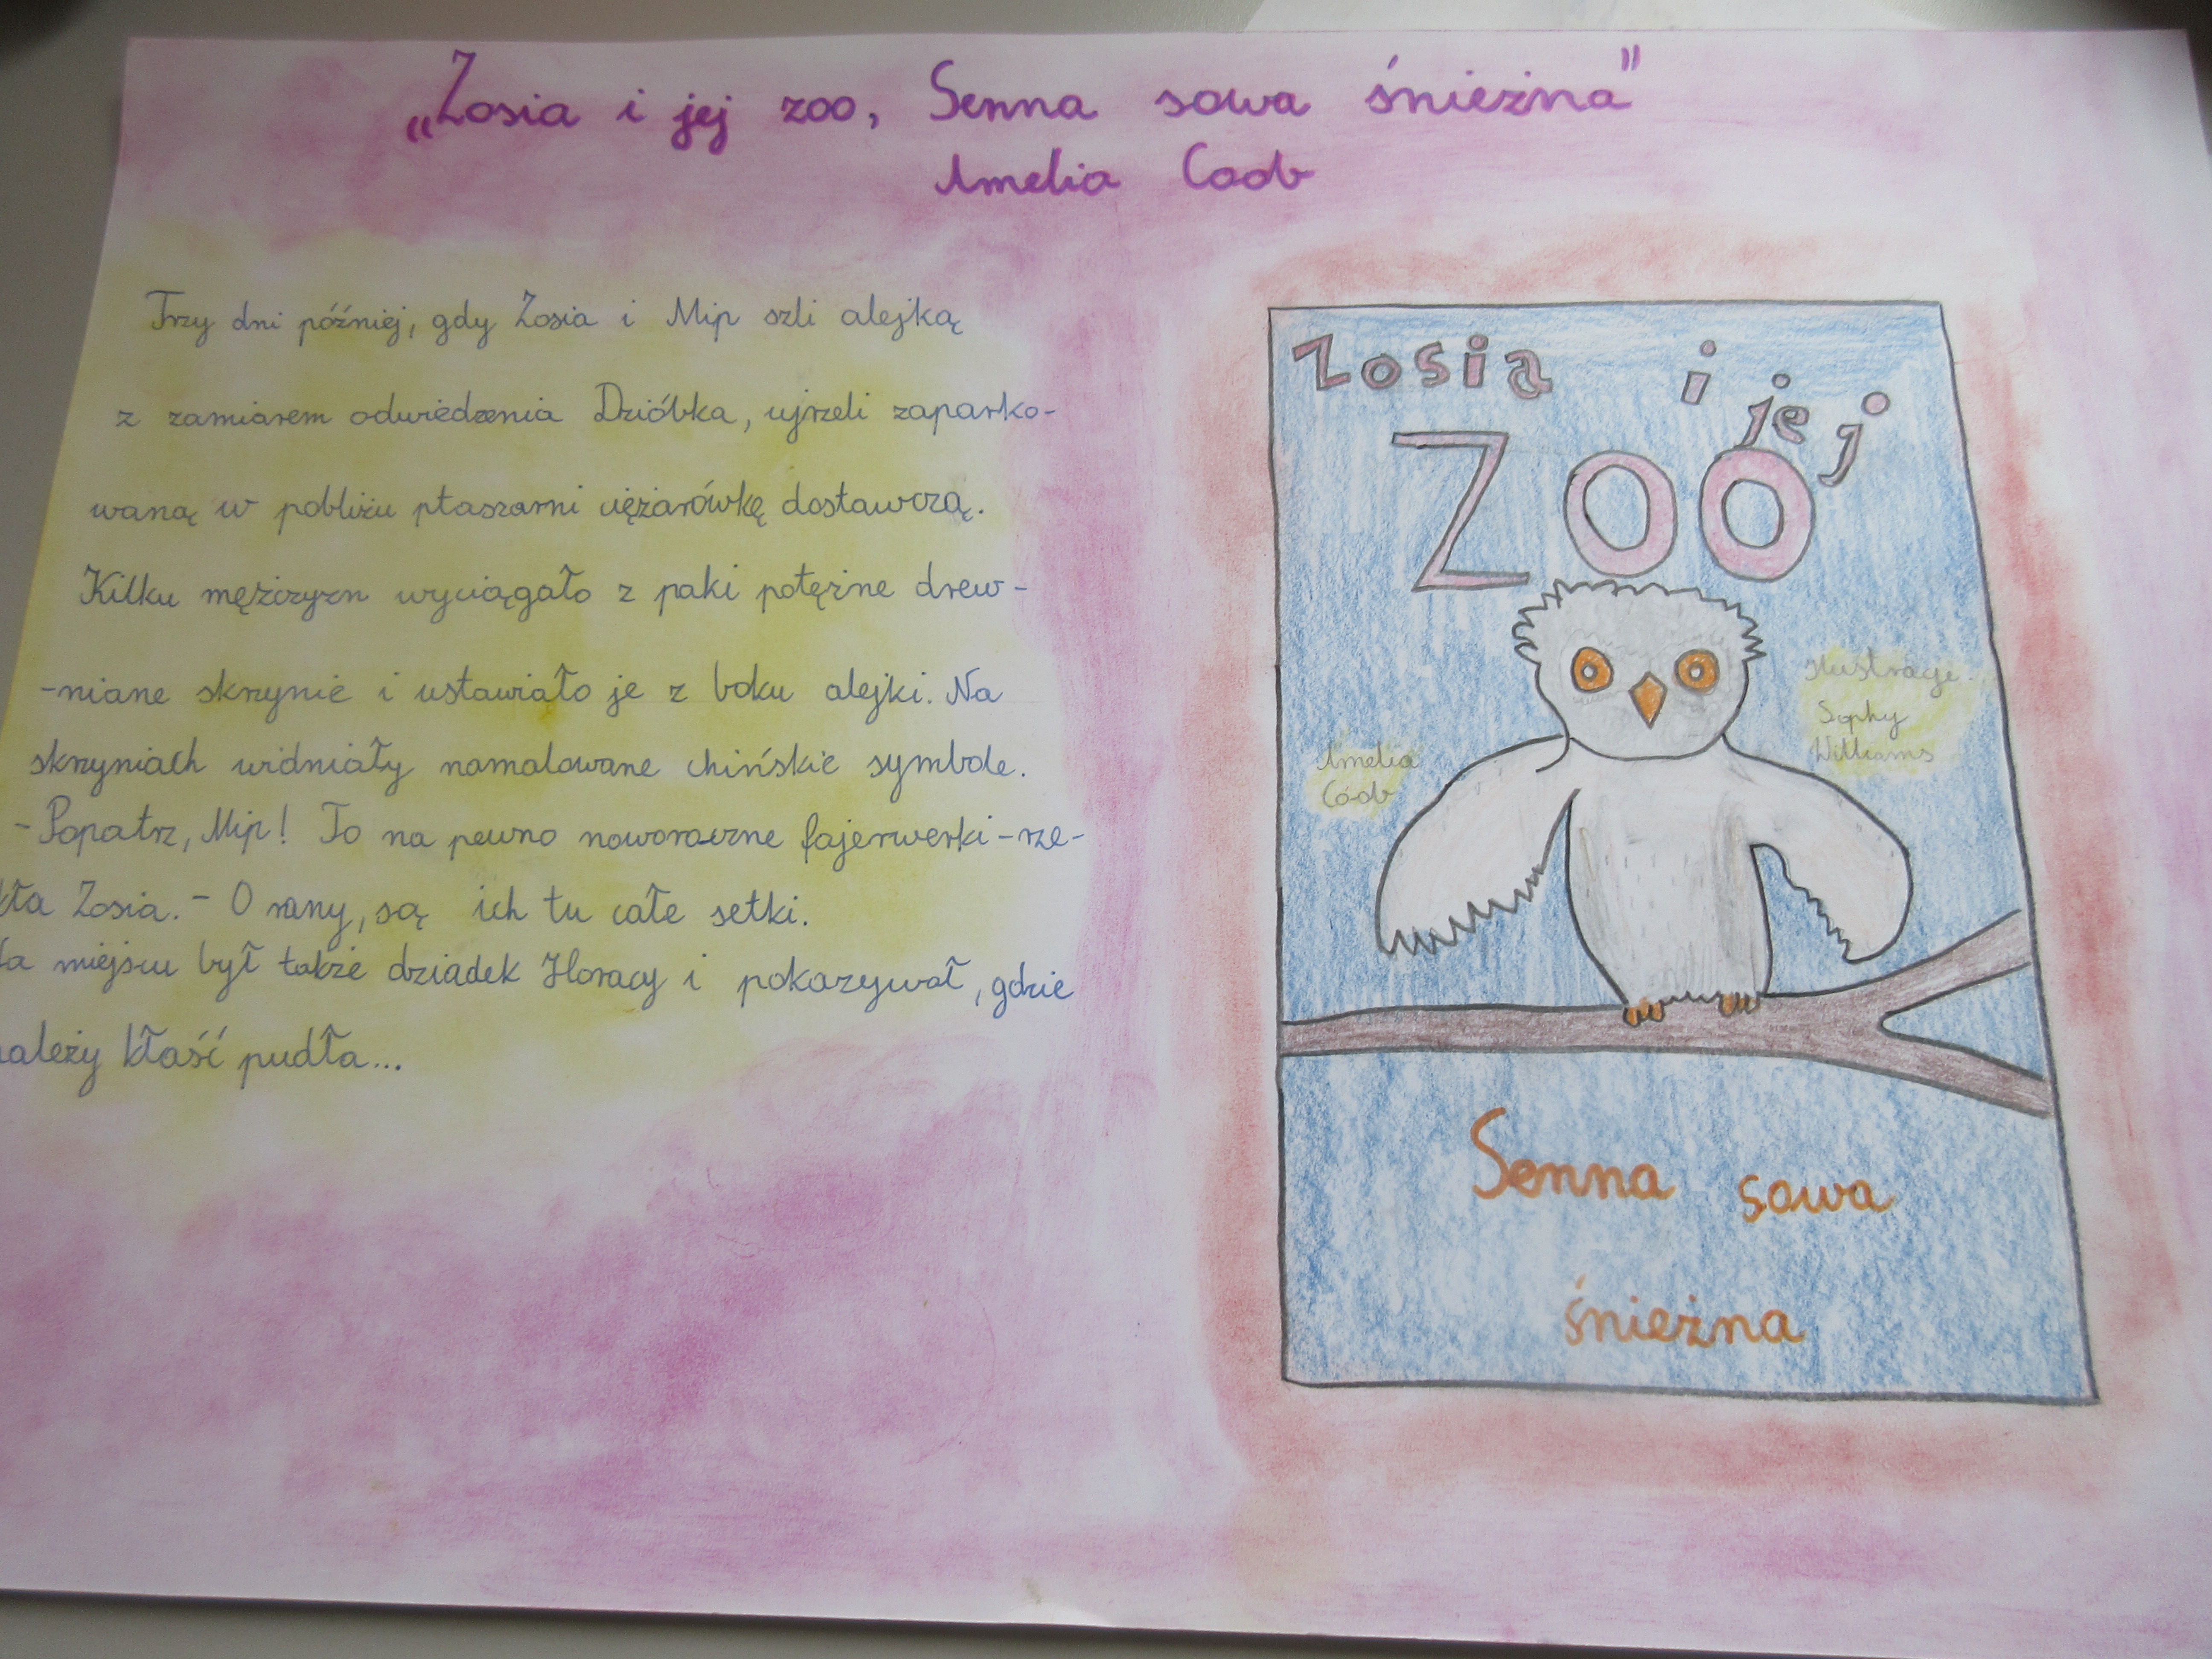 „Zosia i jej zoo, Senna sowa śnieżna"
Amelia Coob
Trzy dni później, gdy Zosia i Mip szli alejką
z zamiarem odwiedzenia Dzióbka, ujrzeli zaparko-
waną w pobliżu ptaszarni ciężarówkę dostawczą.
Kilku mężczyzn wyciągało z paki potężne drew-
-niane skrzynie i ustawiało je z boku alejki. Na
skrzyniach widniały namalowane chińskie symbole.
- Popatrz, Mip! To na pewno noworoczne fajerwerki - rze-
kła Zosia. - O rany, są ich tu całe setki.
a miejscu był także dziadek Horacy i pokazywał, gdzie
ależy kłaść pudła...
Zosia i jej
ZOO
ilustracje
Sophy
Williams
Amelia
Coob
Senna sowa
śnieżna